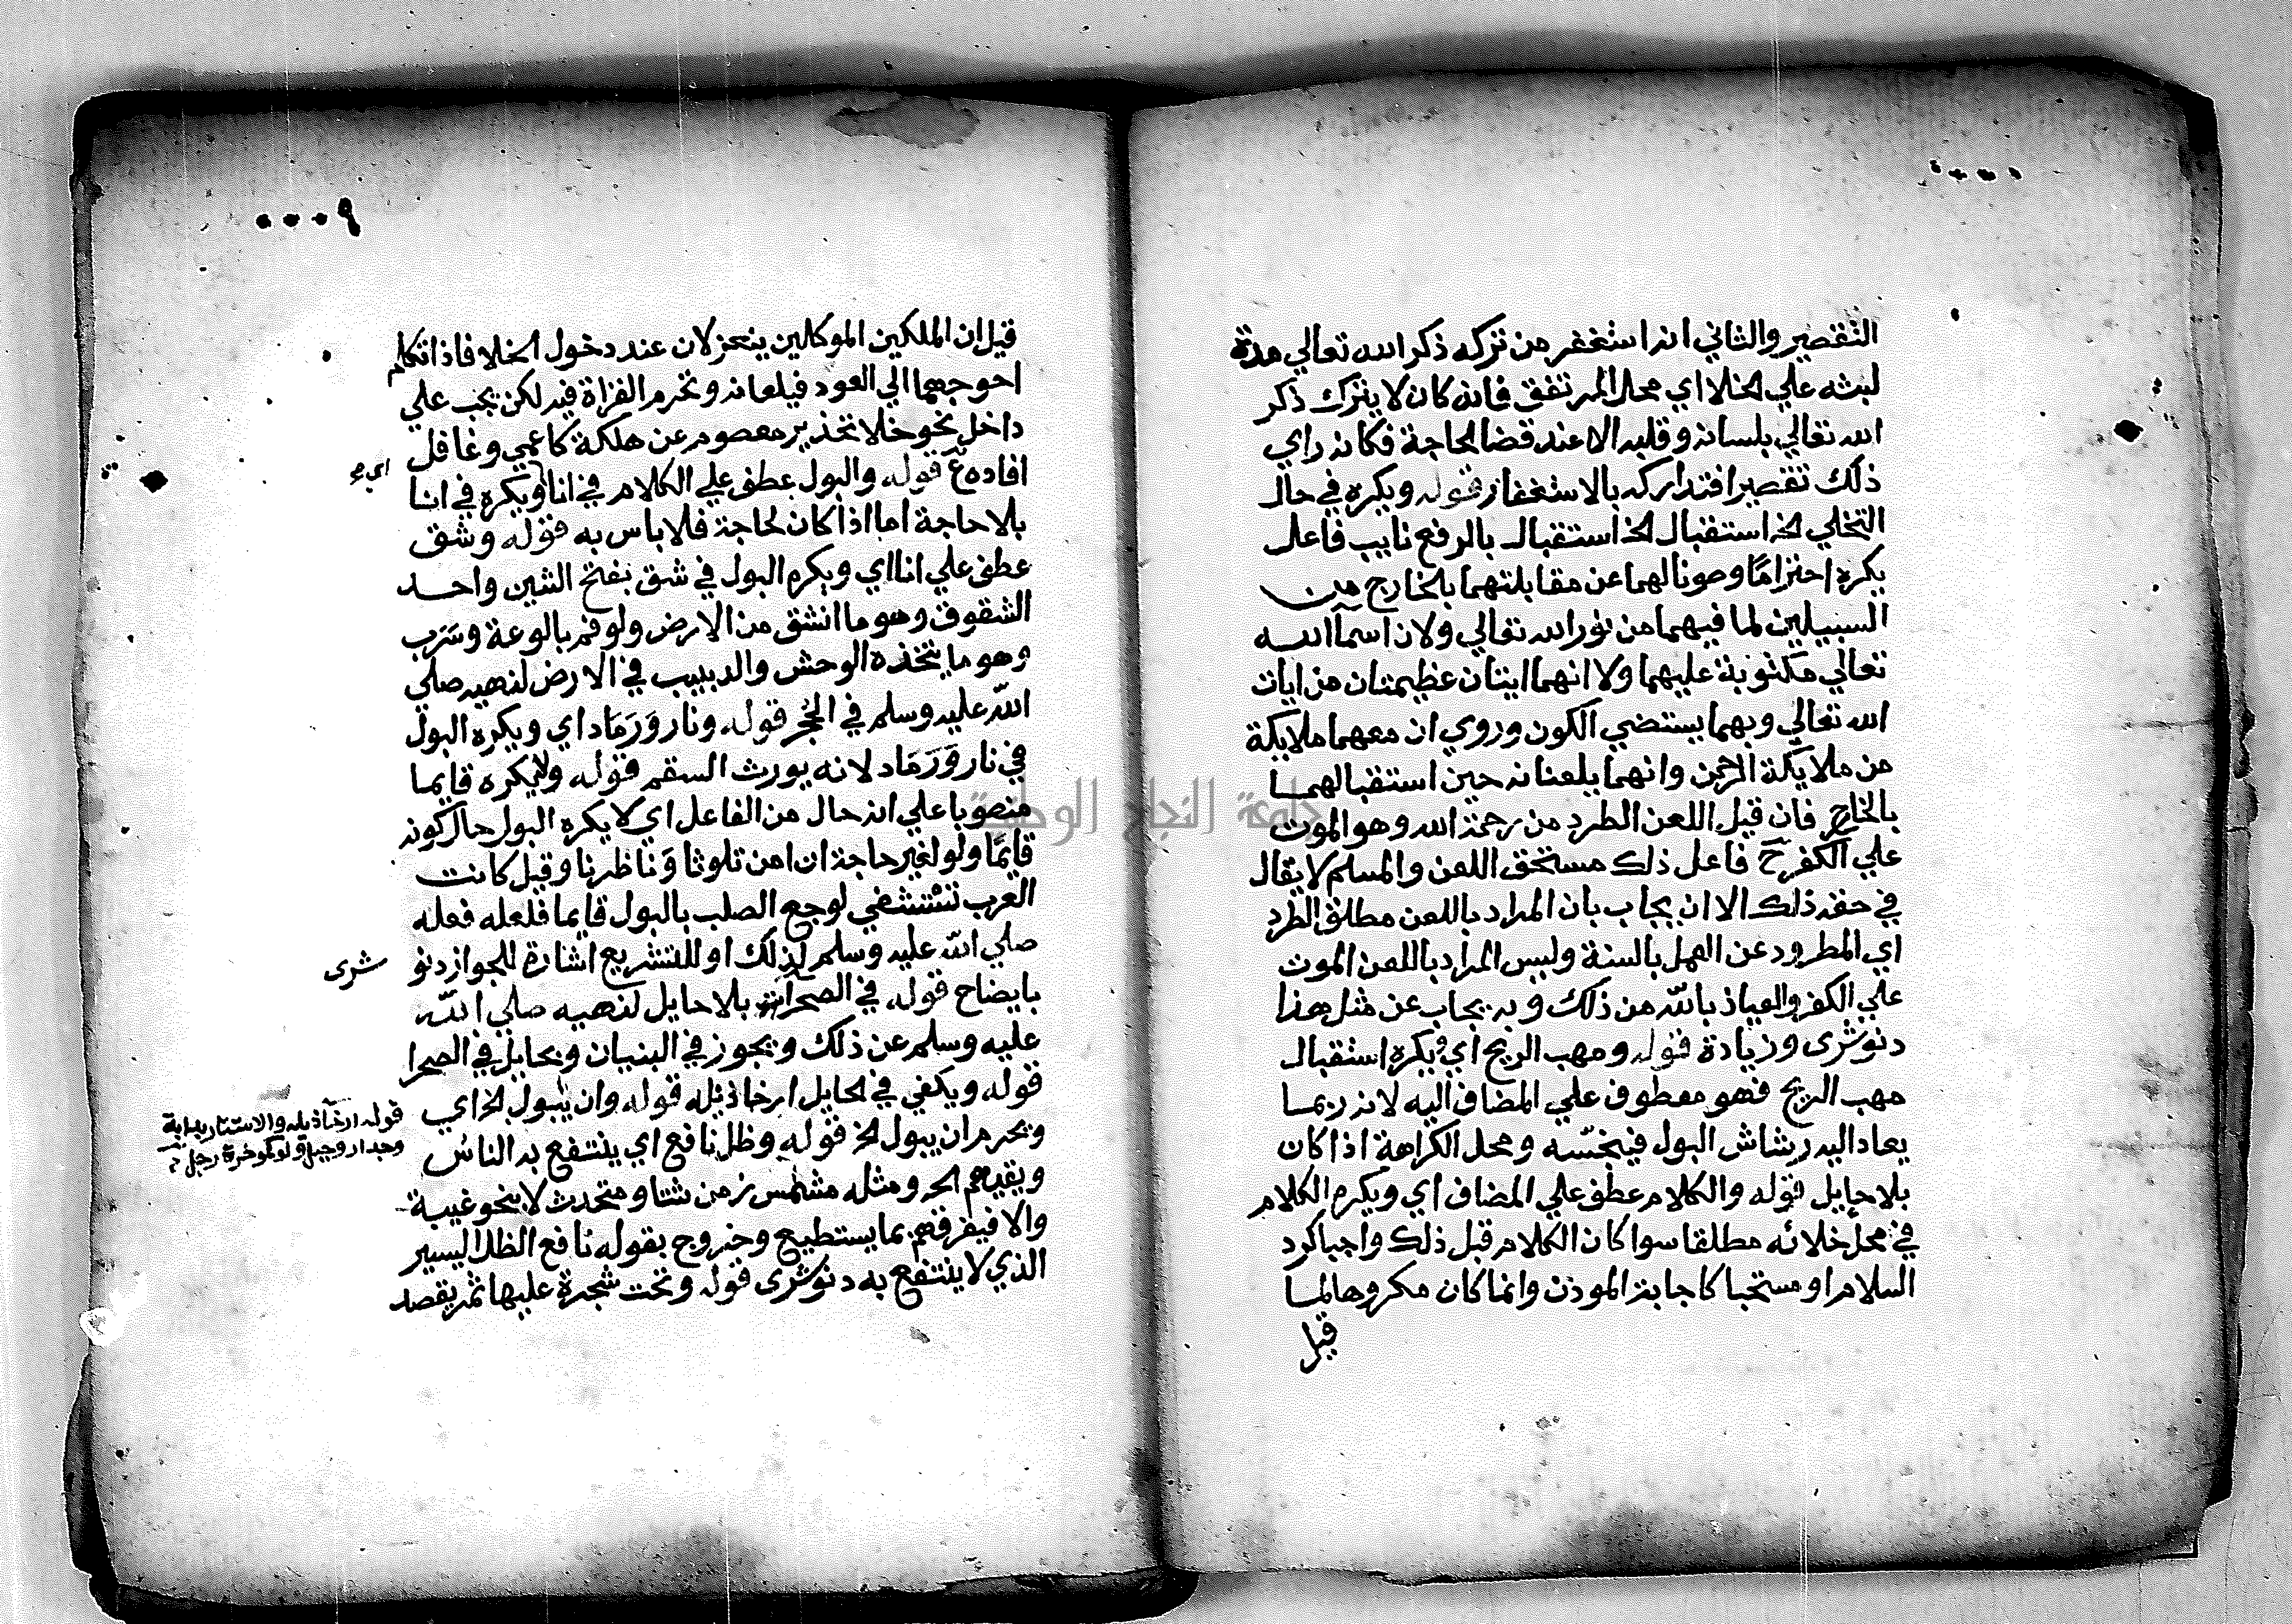 التقصير والثاني انه استغفر من تركه ذكر الله تعالي مدة
لبثه علي الخلا اي محل المرتفق فانه كان لا يترك ذكر
الله تعالي بلسانه وقلبه الا عند قضا الحاجة فكانه راي
ذلك تقصيرا فتداركه بالاستغفار قوله ويكره في حال
التخلي الخ استقبال الخ استقبال بالرفع نايب فاعل
يكره احتراما وصونا لهما عن مقابلتهما بالخارج من
السبيلين لما فيهما من نور الله تعالي ولان اسما الله
تعالي مكتوبة عليهما ولا انهما ايتان عظيمتان من ايات
الله تعالي وبهما يستضي الكون وروي ان معهما ملايكة
من ملايكة الرحمن وانهما يلعنانه حين استقبالهما
بالخارج فان قيل اللعن الطرد من رحمة الله وهو الموت
علي الكفر ح فاعل ذلك مستحق اللعن والمسلم لا يقال
في حقه ذلك الا ان يجاب بان المراد باللعن مطلق الطرد
اي المطرود عن العمل بالسنة وليس المراد باللعن الموت
علي الكفر والعياذ بالله من ذلك وبه يجاب عن مثل هذا
دنوشرى وزيادة قوله ومهب الريح اي ويكره استقبال
مهب الريح فهو معطوف علي المضاف اليه لانه ربما
يعاد اليه رشاش البول فينجسه ومحل الكراهة اذا كان
بلا حايل قوله والكلام عطف علي المضاف اي ويكره الكلام
في محل خلائه مطلقا سوا كان الكلام قبل ذلك واجبا كرد
السلام او مستحبا كاجابة الموذن وانما كان مكروها لما
قيل
٩
قيل ان الملكين الموكلين ينعزلان عند دخول الخلا فاذا تكلم
احوجهما الي العود فيلعانه وتحرم القراة فيه لكن يجب علي
داخل نحو خلا تحذير معصوم عن هلكة كاعمي وغافل
افاده ع قوله والبول عطف علي الكلام في انا ويكره في انا
اي
بلا حاجة اما اذا كان لحاجة فلا باس به قوله وشق
عطف علي انا اي ويكره البول في شق بفتح الشين واحد
الشقوق وهو ما انشق من الارض ولو فم بالوعة وسَرَب
وهو ما يتخذه الوحش والدبيب في الارض لنهيه صلي
الله عليه وسلم في الجُحر قوله ونار ورَمَاد اي ويكره البول
في نار ورَمَاد لانه يورث السقم قوله ولا يكره قايما
منصوبا علي انه حال من الفاعل اي لا يكره البول حال كونه
قايمًا ولو لغير حاجة ان امن تلوثا وَناظرا وقيل كانت
العرب تستشفي لوجع الصلب بالبول قايما فلعله فعله
صلي الله عليه وسلم لذلك او للتشريع اشارة للجواز دنو
شرى
بايضاح قوله في الصحرا بلا حايل لنهيه صلي الله
عليه وسلم عن ذلك ويجوز في البنيان وبحايل في الصحرا
قوله ويكفي في الحايل ارخا ذيله قوله وان يبول الخ اي
قوله ارخآ ذيله والاستتار بدابة
وجدار وجبل ولو كموخرة رحل
ويحرم ان يبول الخ قوله وظل نافع اي ينتفع به الناس
ويقيهم الحر ومثله مشمس زمن شتا ومتحدث لا بنحو غيبة
والا فيفرقهم بما يستطيع وخروج بقوله نافع الظل اليسير
الذي لا ينتفع به دنوشرى قوله وتحت شجرة عليها ثمر يقصد
جامعة النجاح الوطنية